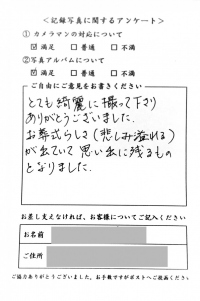 <記録写真に関するアンケート>
①カメラマンの対応について
☑満足 □普通 □不満
②写真アルバムについて
☑満足 □普通 □不満
ご自由にご意見をお書きください
とても綺麗に撮って下さり
ありがとうございました。
お葬式らしさ(悲しみ溢れる)
が出ていて思い出に残るもの
となりました。
お差し支えなければ、お客様についてご記入ください
お名前
ご住所
ご協力ありがとうございました。お手数ですがポストへご投函ください